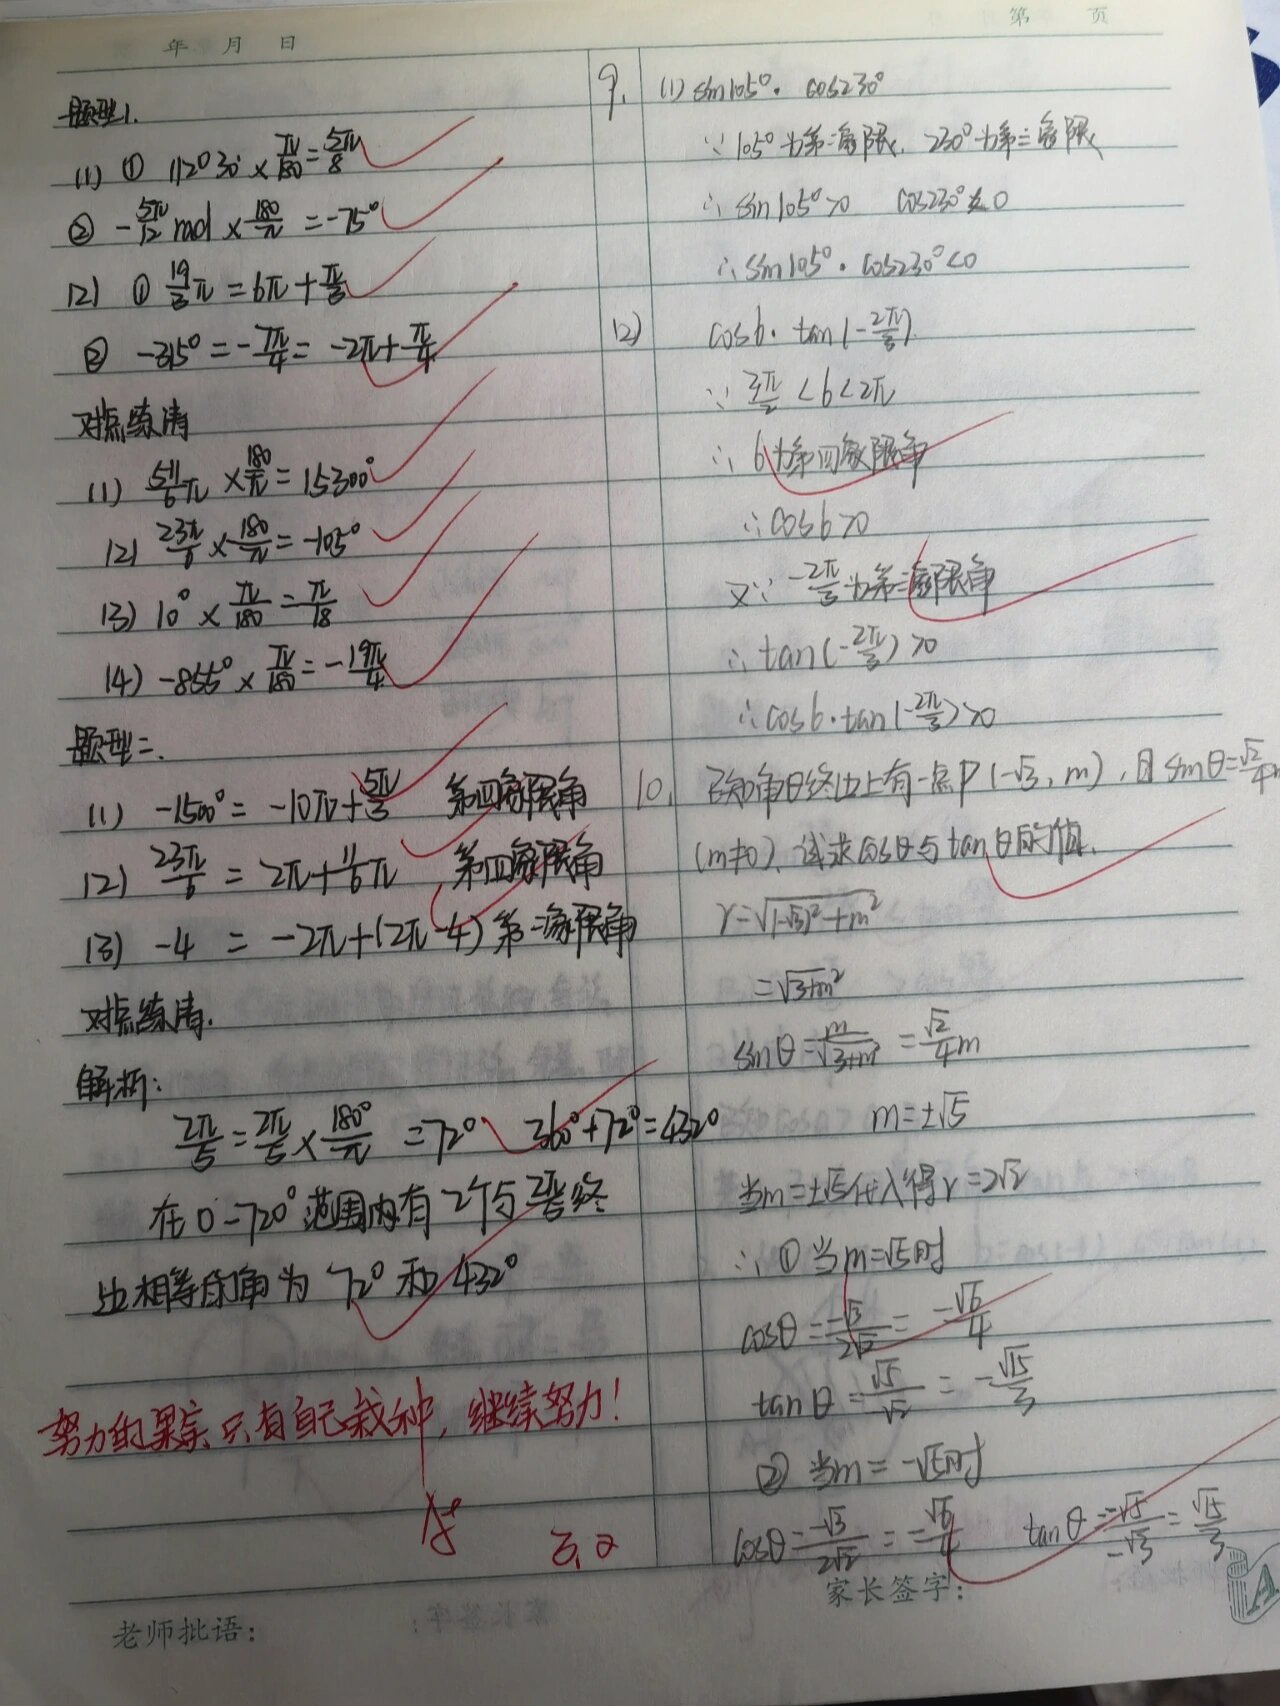 年 月 日
第 页
题型1.
(1) ① 112°30′×π/180=5π/8
② -5π/12 rad × 180/π = -75°
(2) ① 19/3π = 6π+π/3
② -315° = -7π/4 = -2π+π/4
对点练清
(1) 511/6π × 180/π = 15300°
(2) 180/π = -105°
(3) 10° × π/180 = π/18
(4) -855° × π/180 = -19π/4
题型二.
(1) -1500° = -10π+5π/3 第四象限角
(2) 23π/6 = 2π+11/6π 第四象限角
(3) -4 = -2π+(2π-4) 第二象限角
对点练清.
解析:
2π/5 = 2π/5 × 180°/π = 72° 360°+72°=432°
在0-720°范围内有2个与2π/5终
边相等的角为 72°和432°
努力的果实只有自己栽种,继续努力!
优
3,2
老师批语:
9. (1) sin105°·cos230°
∵105°为第二象限,230°为第三象限
∴sin105°>0 cos230°<0
∴sin105°·cos230°<0
(2) cos6·tan(-2π/3)
∵ 3π/2 <6<2π
∴6为第四象限角
∴cos6>0
又∵ -2π/3 为第三象限角
∴tan(-2π/3)>0
∴cos6·tan(-2π/3)>0
10. 已知角θ终边上有一点P(-√3,m),且sinθ=√2/4m
(m≠0),试求cosθ与tanθ的值.
r=√((-√3)²+m²)
=√(3+m²)
sinθ=m/√(3+m²)=√2/4m
m=±√5
当m=±√5代入得r=2√2
∴①当m=√5时
cosθ=-√3/2√2=-√6/4
tanθ=√5/√2=-√15/3
②当m=-√5时
cosθ=-√3/2√2=-√6/4 tanθ=-√5/-√3=√15/3
家长签字:
A